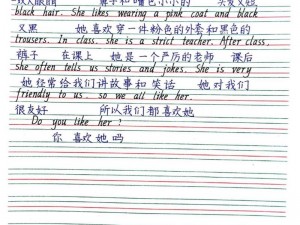 双大眼睛 鼻子和嘴巴小小的 头发又短
black hair. She likes wearing a pink coat and black
又黑 她喜欢穿一件粉色的外套和黑色的
trousers. In class. she is a strict teacher. After class.
裤子 在课上 她是一个严厉的老师 课后
she often tells us stories and jokes. She is very
她经常给我们讲故事和笑话 她对我们
friendly to us. so we all like her.
很友好 所以我们都喜欢她
Do you like her ?
你喜欢她吗